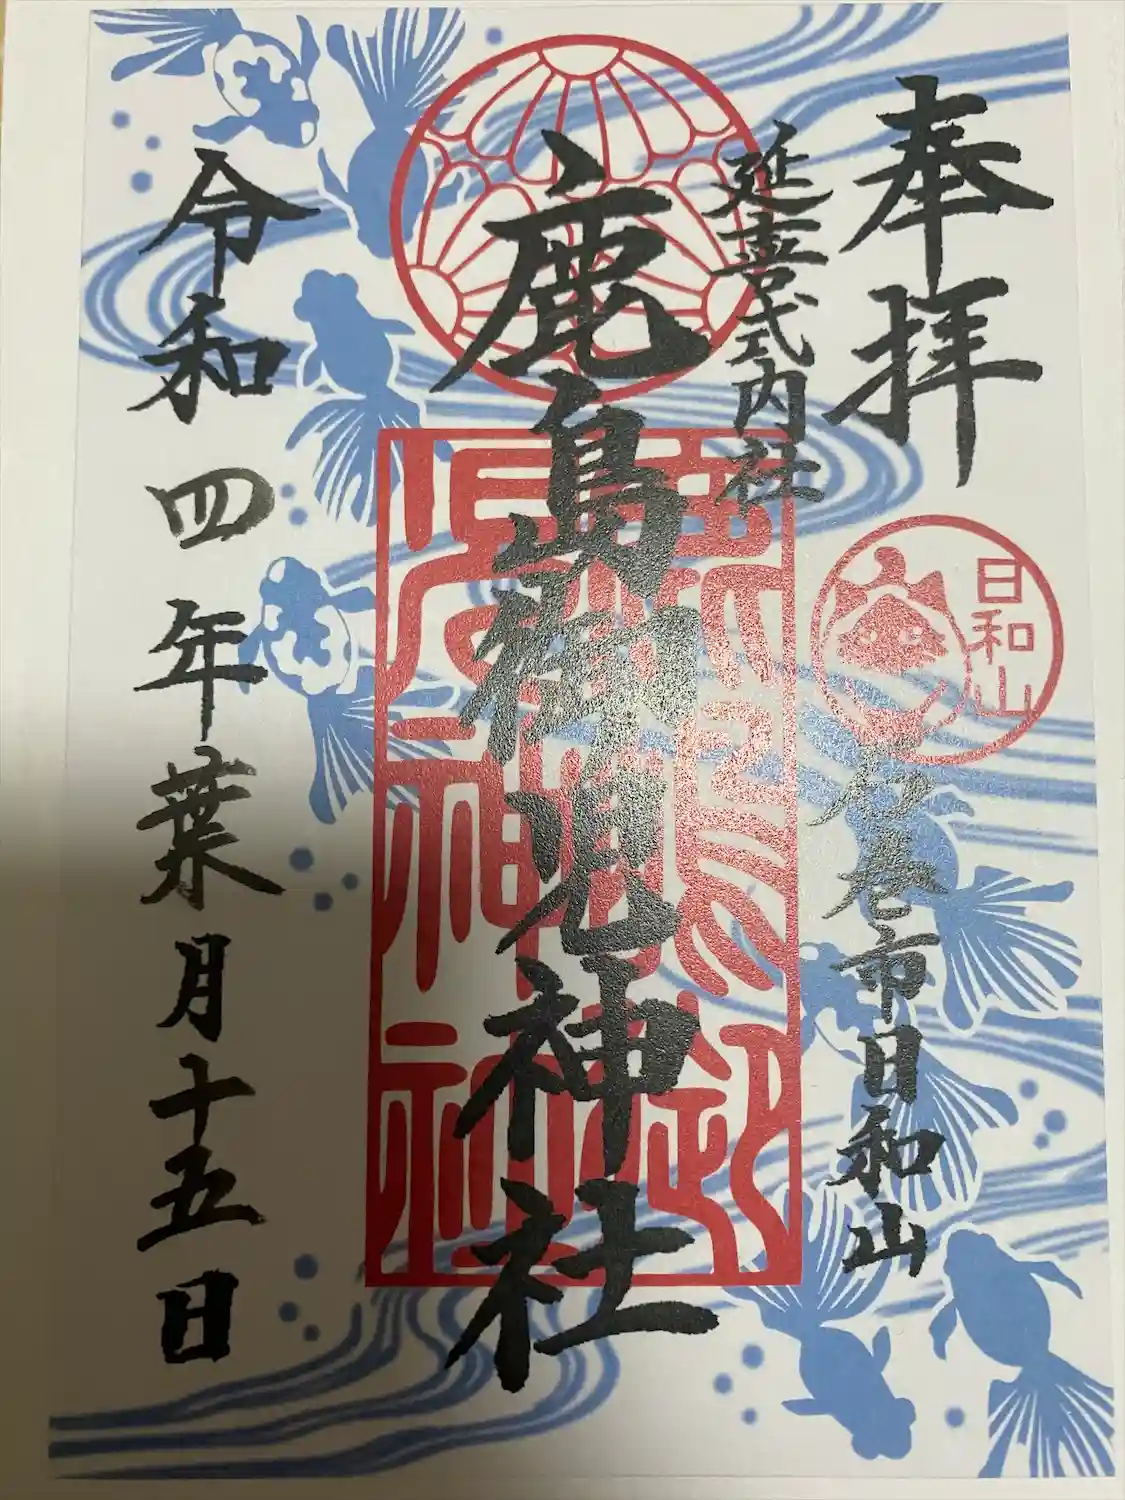 奉拝
延喜式内社
日和山
石巻市日和山
鹿島御児神社
令和四年葉月十五日